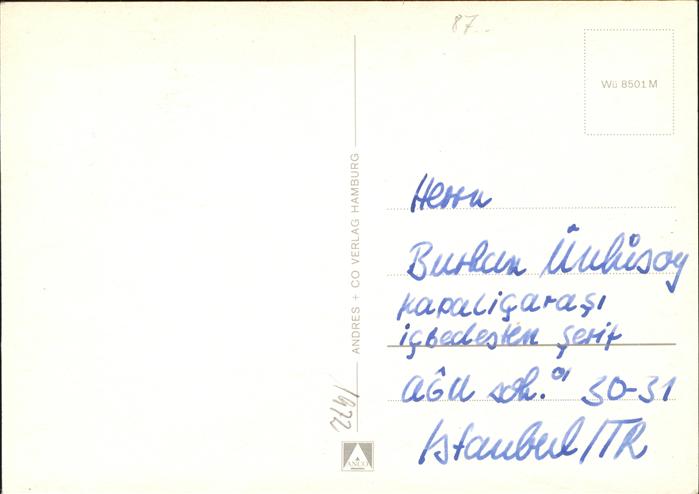 87..
Wü 8501 M
ANDRES + CO VERLAG HAMBURG
1972
ANCO
Herrn
Burhan Ünlüsoy
Kapaligaraşı
içbedesten Şerif
AĞA sok. 30-31
Istanbul/TR